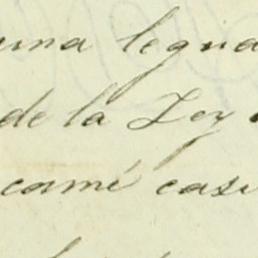 una legua
de la Ley
camé casi